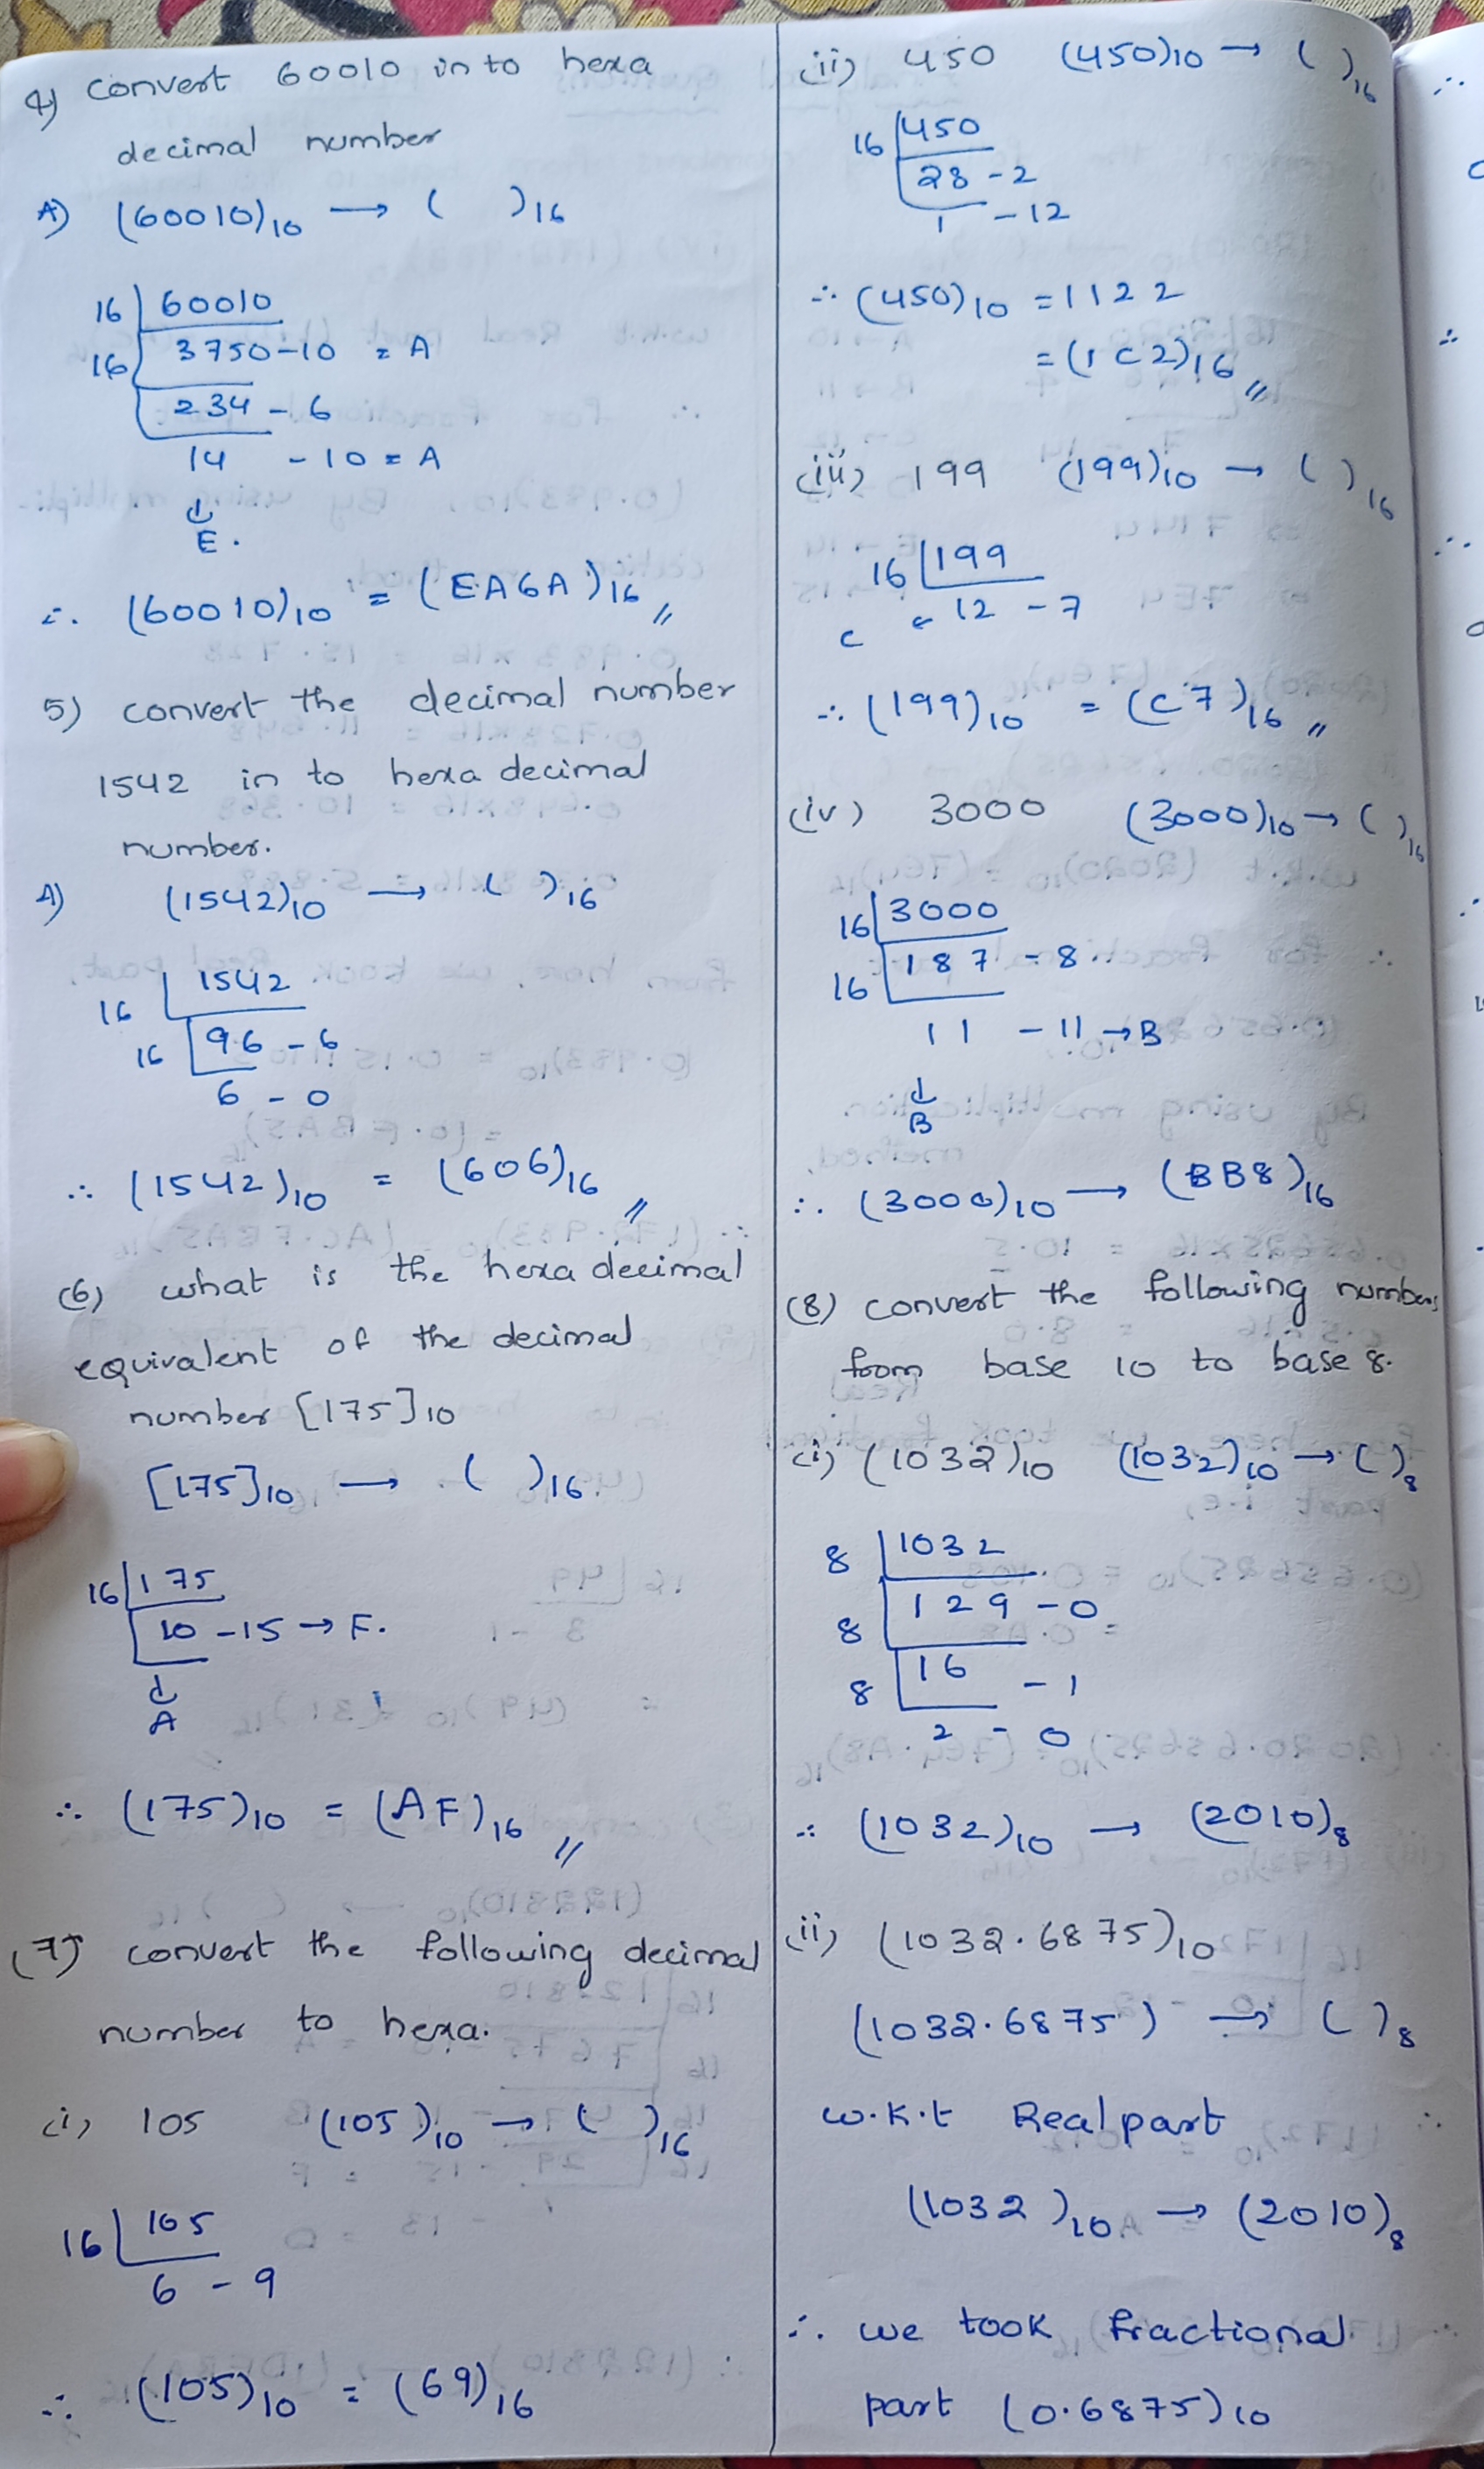 4) convert 60010 in to hexa
decimal number
A) (60010)10 → ( )16
16 | 60010
16 | 3750-10 = A
234 - 6
14 - 10 = A
↓
E.
∴ (60010)10 = (EA6A)16 //
5) convert the decimal number
1542 in to hexa decimal
number.
A) (1542)10 → ( )16
16 | 1542
16 | 96 - 6
6 - 0
∴ (1542)10 = (606)16 //
(6) what is the hexa decimal
equivalent of the decimal
number [175]10
[175]10 → ( )16
16 | 175
10 - 15 → F.
↓
A
∴ (175)10 = (AF)16 //
(7) convert the following decimal
number to hexa.
(i) 105 (105)10 → ( )16
16 | 105
6 - 9
∴ (105)10 = (69)16
(ii) 450 (450)10 → ( )16
16 | 450
28 - 2
1 - 12
∴ (450)10 = 1122
= (1C2)16 //
(iii) 199 (199)10 → ( )16
16 | 199
C ← 12 - 7
∴ (199)10 = (C7)16 //
(iv) 3000 (3000)10 → ( )16
16 | 3000
16 | 187 - 8
11 - 11 → B
↓
B
∴ (3000)10 → (BB8)16
(8) convert the following numbers
from base 10 to base 8.
(i) (1032)10 (1032)10 → ( )8
8 | 1032
8 | 129 - 0
8 | 16 - 1
2 - 0
∴ (1032)10 → (2010)8
(ii) (1032.6875)10
(1032.6875) → ( )8
w.k.t Real part
(1032)10 → (2010)8
∴ we took fractional
part (0.6875)10